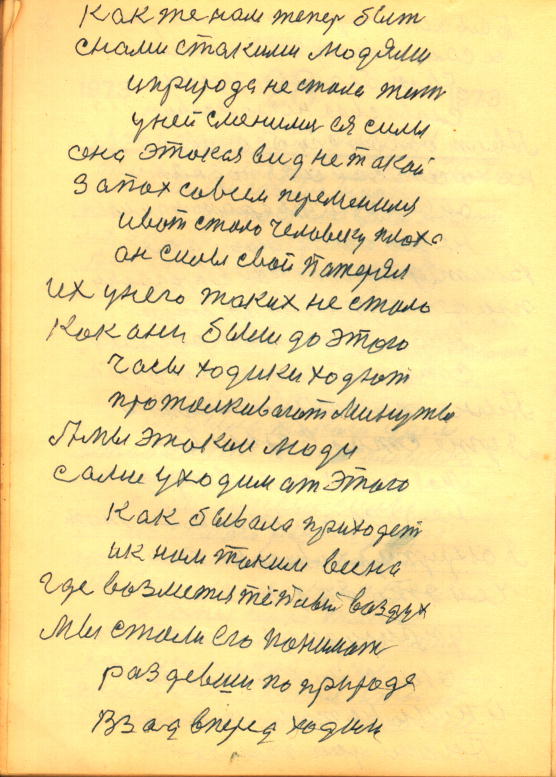 Как же нам тепер быт
с нами стакими людями
иприрода не стала тет
уней сменимися силы
она этокая вид не такой
Запах совсем перемениля
ивот стало человеку плоха
ан силы свои патерял
их унего таких не стало
Как ани были до этого
часы ходики ходют
проталкивают минуты
Амы этокои люди
сами уходим ат этого
как бывала приходет
ик нам таким весна
где возметя тёплый воздух
Мы стали его понимат
раздевши по природе
взад вперед ходим